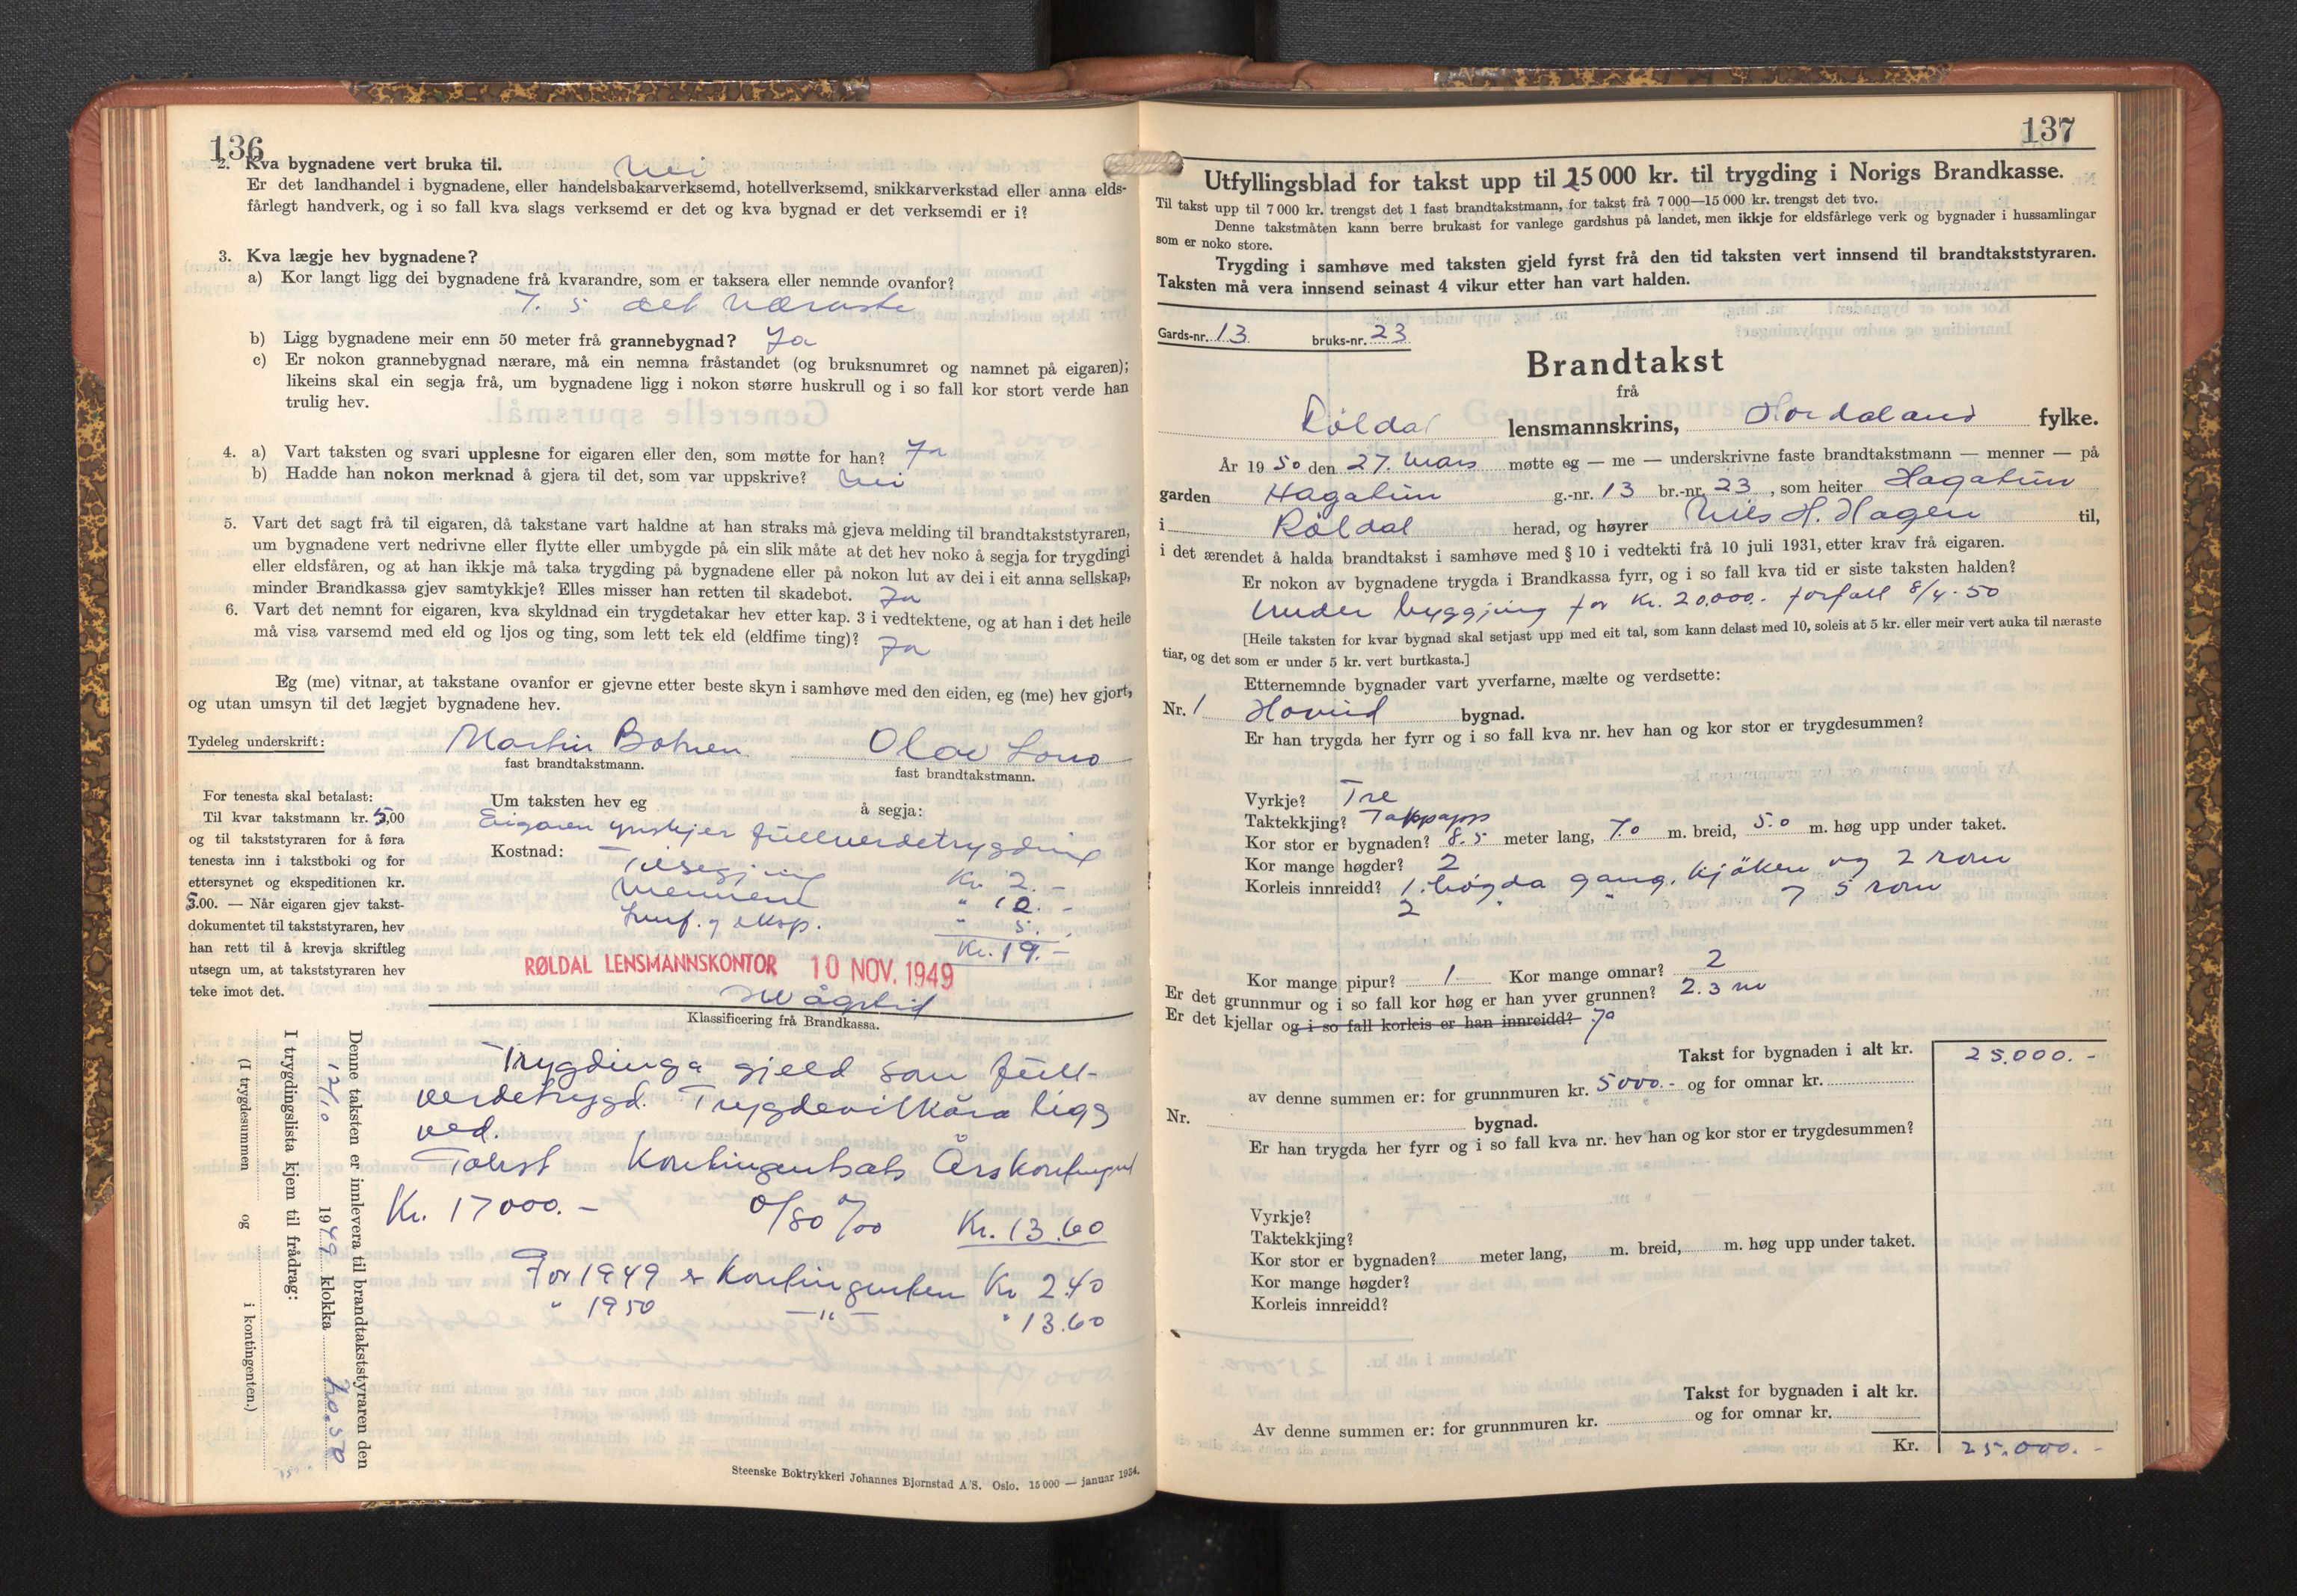 136
2. Kva bygnadene vert bruka til. Nei
Er det landhandel i bygnadene, eller handelsbakarverksemd, hotellverksemd, snikkarverkstad eller anna elds-
fårlegt handverk, og i so fall kva slags verksemd er det og kva bygnad er det verksemdi er i?
3. Kva lægje hev bygnadene?
a) Kor langt ligg dei bygnadene frå kvarandre, som er taksera eller nemnde ovanfor?
7.5 det næraste
b) Ligg bygnadene meir enn 50 meter frå grannebygnad? Ja
c) Er nokon grannebygnad nærare, må ein nemna fråstandet (og bruksnumret og namnet på eigaren);
likeins skal ein segja frå, um bygnadene ligg i nokon større huskrull og i so fall kor stort verde han
trulig hev.
4. a) Vart taksten og svari upplesne for eigaren eller den, som møtte for han? Ja
b) Hadde han nokon merknad å gjera til det, som var uppskrive? Nei
5. Vart det sagt frå til eigaren, då takstane vart haldne at han straks må gjeva melding til brandtakststyraren,
um bygnadene vert nedrivne eller flytte eller umbygde på ein slik måte at det hev noko å segja for trygdingi
eller eldsfåren, og at han ikkje må taka trygding på bygnadene eller på nokon lut av dei i eit anna sellskap,
minder Brandkassa gjev samtykkje? Elles misser han retten til skadebot. Ja
6. Vart det nemnt for eigaren, kva skyldnad ein trygdetakar hev etter kap. 3 i vedtektene, og at han i det heile
må visa varsemd med eld og ljos og ting, som lett tek eld (eldfime ting)? Ja
Eg (me) vitnar, at takstane ovanfor er gjevne etter beste skyn i samhøve med den eiden, eg (me) hev gjort,
og utan umsyn til det lægjet bygnadene hev.
Tydeleg underskrift: Martin Botnen Olav Lono
fast brandtakstmann. fast brandtakstmann.
For tenesta skal betalast:
Til kvar takstmann kr. 5,00
og til takststyraren for å føra
tenesta inn i takstboki og for
ettersynet og ekspeditionen kr.
5.00. — Når eigaren gjev takst-
dokumentet til takststyraren, hev
han rett til å krevja skriftleg
utsegn um, at takststyraren hev
teke imot det.
Um taksten hev eg å segja:
Eigaren ynskjer fullverdetrygding
Kostnad: Tilsegjing Kr. 2.-
Mennene " 12.-
Innf. og eksp. " 5.
Kr. 19.-
RØLDAL LENSMANNSKONTOR 10 NOV. 1949
Klassificering frå Brandkassa.
Trygdinga gjeld som full-
verdetrygd. Trygdevilkåra ligg
ved.
Takst Kontingentsats Årskontingent
Kr. 17000.- 0/80 ‰ Kr. 13.60
For 1949 er kontingenten Kr 2.40
" 1950 —"— " 13.60
Denne taksten er innlevera til brandtakststyraren den
12/10 1949 klokka 20.50
I trygdingslista kjem til frådrag:
(I trygdesummen og i kontingenten.)
Steenske Boktrykkeri Johannes Bjørnstad A/S. Oslo. 15 000 — januar 1934.
137
Utfyllingsblad for takst upp til 25 000 kr. til trygding i Norigs Brandkasse.
Til takst upp til 7 000 kr. trengst det 1 fast brandtakstmann, for takst frå 7 000—15 000 kr. trengst det tvo.
Denne takstmåten kann berre brukast for vanlege gardshus på landet, men ikkje for eldsfårlege verk og bygnader i hussamlingar
som er noko store.
Trygding i samhøve med taksten gjeld fyrst frå den tid taksten vert innsend til brandtakststyraren.
Taksten må vera innsend seinast 4 vikur etter han vart halden.
Gards-nr. 13 bruks-nr. 23
Brandtakst
frå
Röldal lensmannskrins, Hordaland fylke.
År 1950 den 27. mars møtte eg — me — underskrivne faste brandtakstmann — menner — på
garden Hagatun g.-nr. 13 br.-nr. 23, som heiter Hagatun
i Röldal herad, og høyrer Nils H. Hagen til,
i det ærendet å halda brandtakst i samhøve med § 10 i vedtekti frå 10 juli 1931, etter krav frå eigaren.
Er nokon av bygnadene trygda i Brandkassa fyrr, og i so fall kva tid er siste taksten halden?
Under byggjing for kr. 20.000.- forfall 8/4-50
[Heile taksten for kvar bygnad skal setjast upp med eit tal, som kann delast med 10, soleis at 5 kr. eller meir vert auka til næraste
tiar, og det som er under 5 kr. vert burtkasta.]
Etternemnde bygnader vart yverfarne, mælte og verdsette:
Nr. 1 Hovud bygnad.
Er han trygda her fyrr og i so fall kva nr. hev han og kor stor er trygdesummen?
Vyrkje? Tre
Taktekkjing? Takpapp
Kor stor er bygnaden? 8.5 meter lang, 7.0 m. breid, 5.0 m. høg upp under taket.
Kor mange høgder? 2
Korleis innreidd? 1. høgda gang, kjøken og 2 rom
2 " " og 5 rom
Kor mange pipur? 1 Kor mange omnar? 2
Er det grunnmur og i so fall kor høg er han yver grunnen? 2.3 m
Er det kjellar og i so fall korleis er han innreidd? Ja
Takst for bygnaden i alt kr. 25.000.-
av denne summen er: for grunnmuren kr. 5000.- og for omnar kr.
Nr. bygnad.
Er han trygda her fyrr og i so fall kva nr. hev han og kor stor er trygdesummen?
Vyrkje?
Taktekkjing?
Kor stor er bygnaden? meter lang, m. breid, m. høg upp under taket.
Kor mange høgder?
Korleis innreidd?
Takst for bygnaden i alt kr.
Av denne summen er: for grunnmuren kr. og for omnar kr.
Kr. 25.000.-